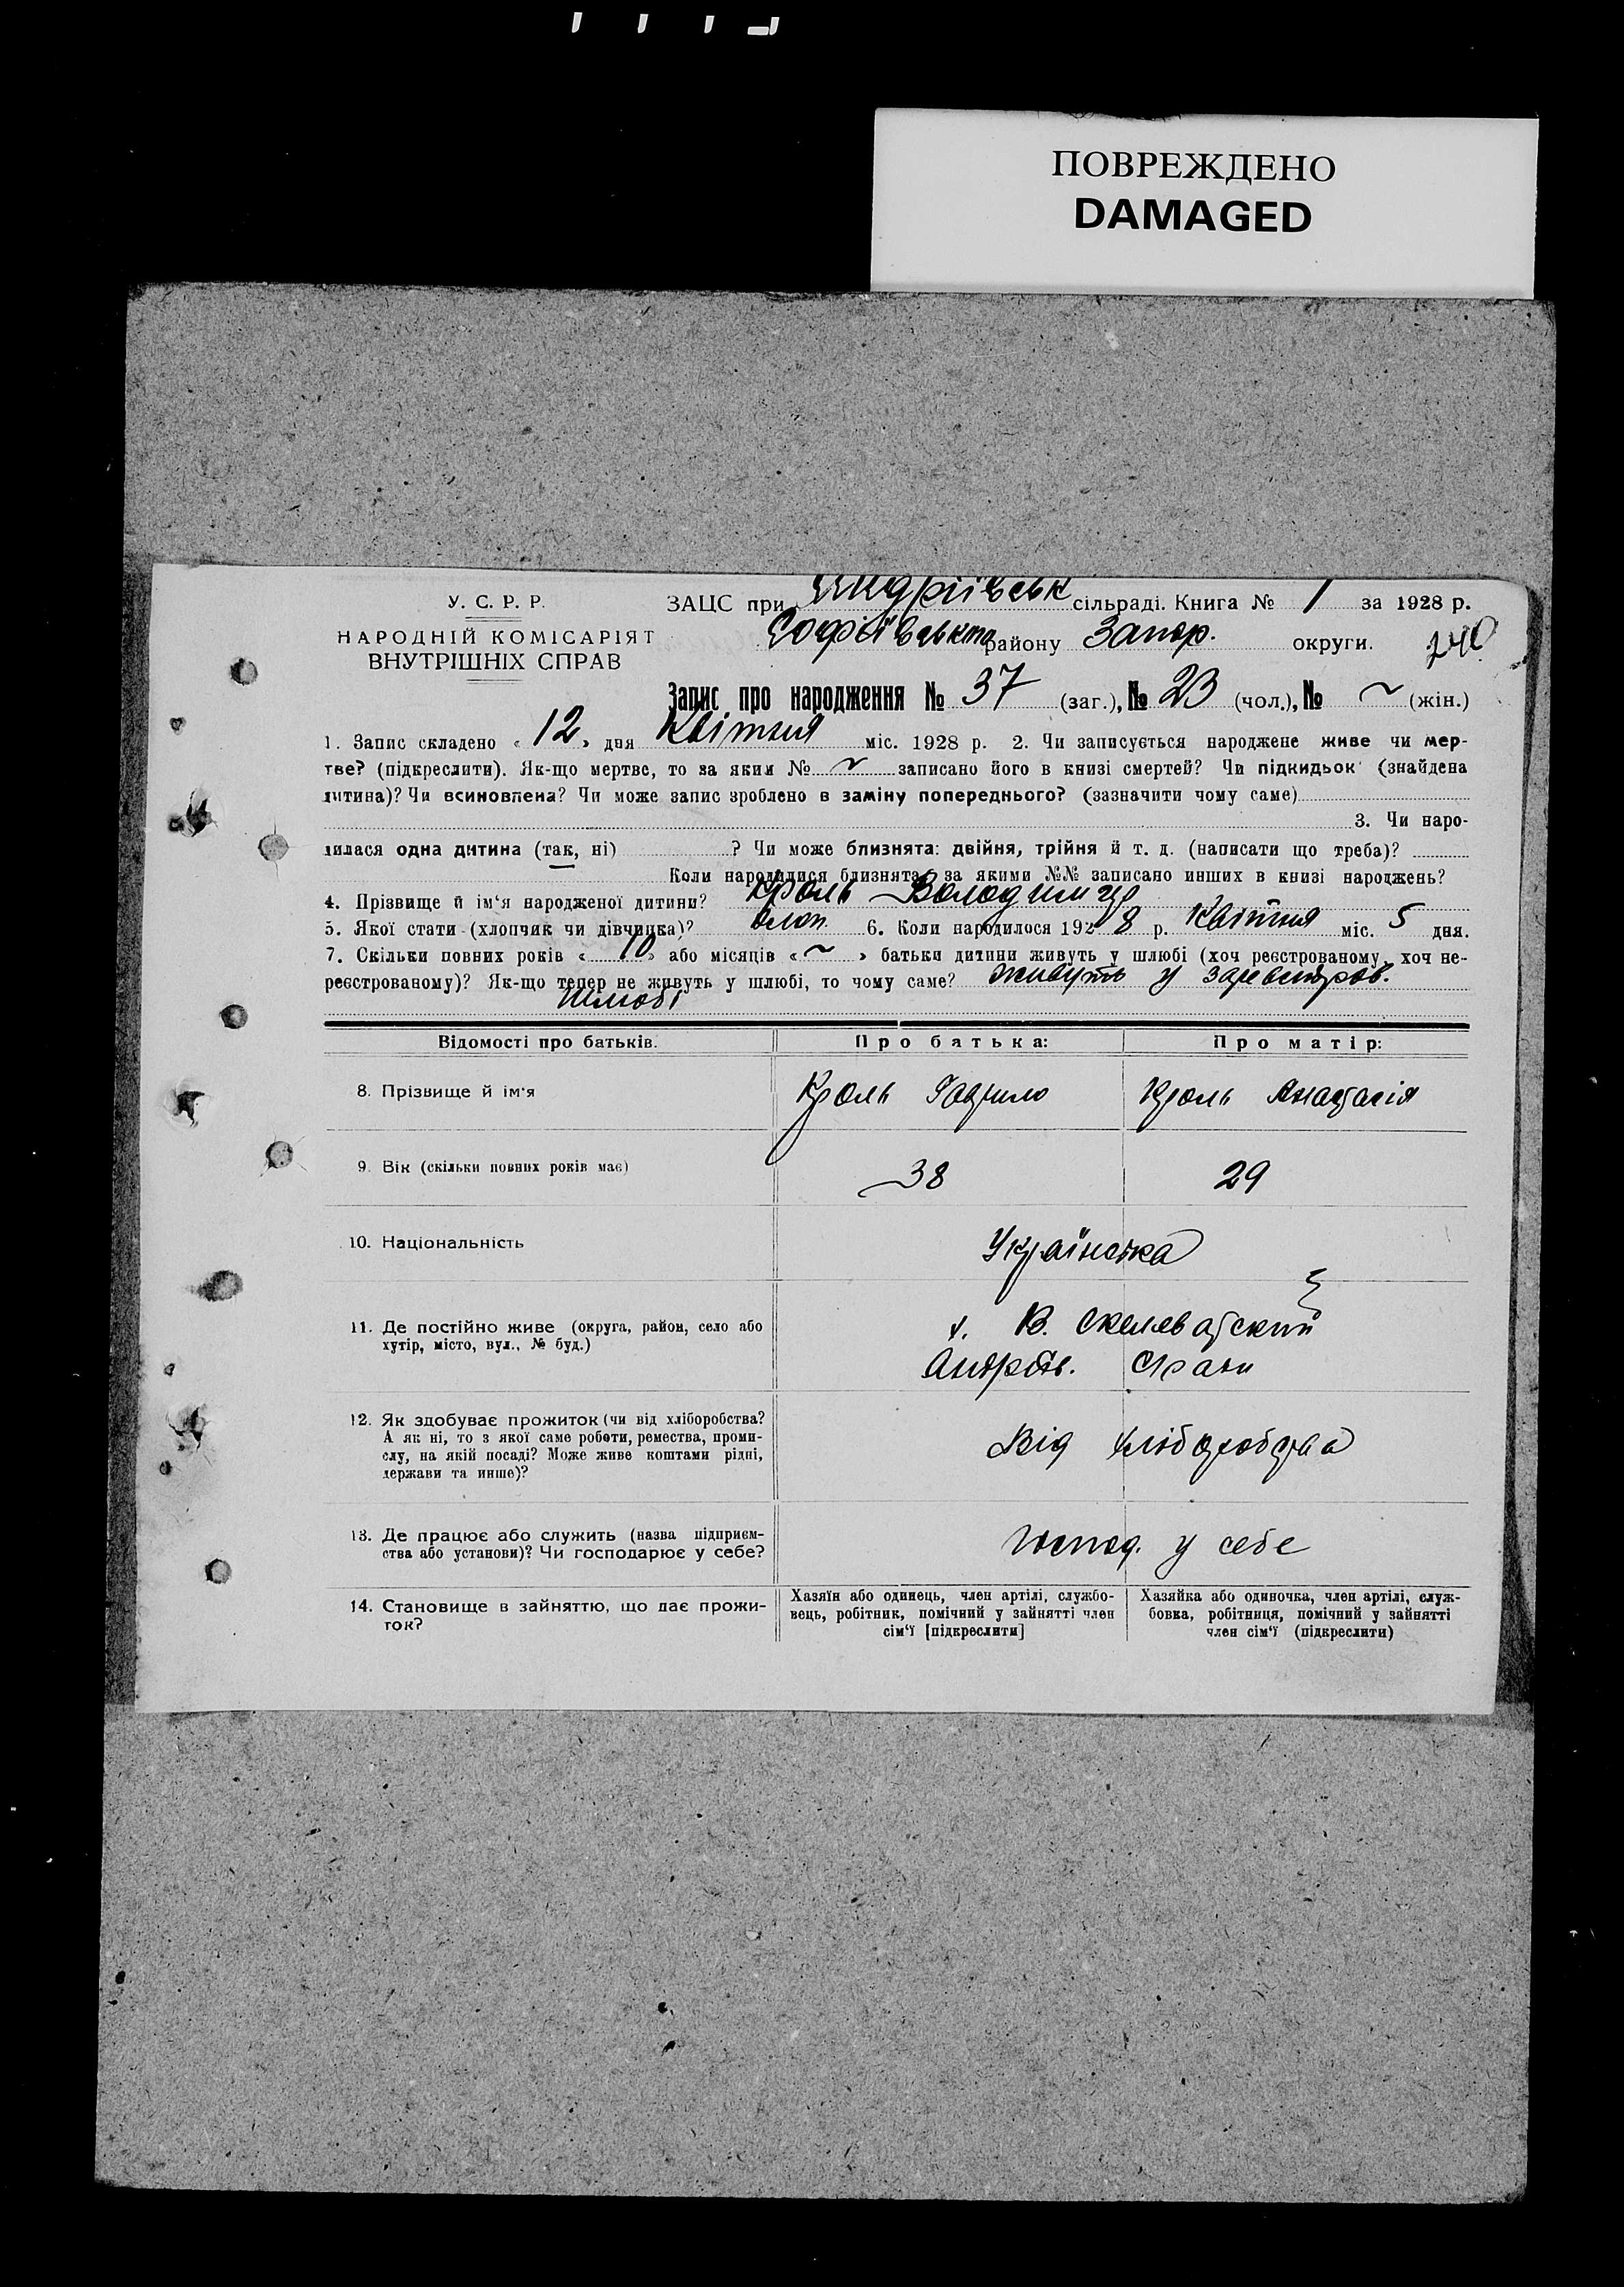 ПОВРЕЖДЕНО
DAMAGED
У. С. Р. Р.
НАРОДНІЙ КОМІСАРІЯТ
ВНУТРІШНІХ СПРАВ
ЗАЦС при Андріївськ сільраді. Книга № 1 за 1928 р.
Софіївського району Запор. округи. 240
Запис про народження № 37 (заг.), № 23 (чол.), № ~ (жін.)
1. Запис складено « 12 » дня Квітня міс. 1928 р. 2. Чи записується народжене живе чи мер-
тве? (підкреслити). Як-що мертве, то за яким № ~ записано його в книзі смертей? Чи підкидьок (знайдена
дитина)? Чи всиновлена? Чи може запис зроблено в заміну попереднього? (зазначити чому саме)
3. Чи наро-
дилася одна дитина (так, ні) ? Чи може близнята: двійня, трійня й т. д. (написати що треба)?
Коли народилися близнята, за якими №№ записано инших в книзі народжень?
4. Прізвище й ім'я народженої дитини? Кроль Володимир
5. Якої стати (хлопчик чи дівчинка)? хлоп. 6. Коли народилося 192 8 р. Квітня міс. 5 дня.
7. Скільки повних років « 10 » або місяців « ~ » батьки дитини живуть у шлюбі (хоч реєстрованому, хоч не-
реєстрованому)? Як-що тепер не живуть у шлюбі, то чому саме? живуть у зареєстров.
шлюбі
Відомості про батьків. Про батька: Про матір:
8. Прізвище й ім'я Кроль Гаврило Кроль Анастасія
9. Вік (скільки повних років має) 38 29
10. Національність Українська
11. Де постійно живе (округа, район, село або
хутір, місто, вул., № буд.)
х. В. Скелеватский
Андріїв.
12. Як здобуває прожиток (чи від хліборобства?
А як ні, то з якої саме роботи, ремества, проми-
слу, на якій посаді? Може живе коштами рідні,
держави та инше)?
Від хліборобства
13. Де працює або служить (назва підприєм-
ства або установи)? Чи господарює у себе?
Господ. у себе
14. Становище в зайняттю, що дає прожи-
ток?
Хазяїн або одинець, член артілі, службо-
вець, робітник, помічний у зайнятті член
сім'ї [підкреслити]
Хазяйка або одиночка, член артілі, служ-
бовка, робітниця, помічний у зайнятті
член сім'ї (підкреслити)